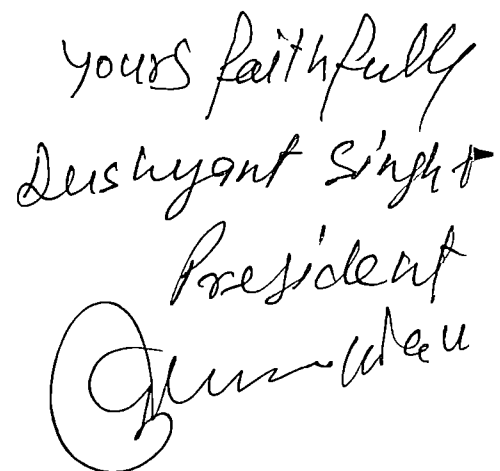 yours faithfully
Dushyant Singh
President